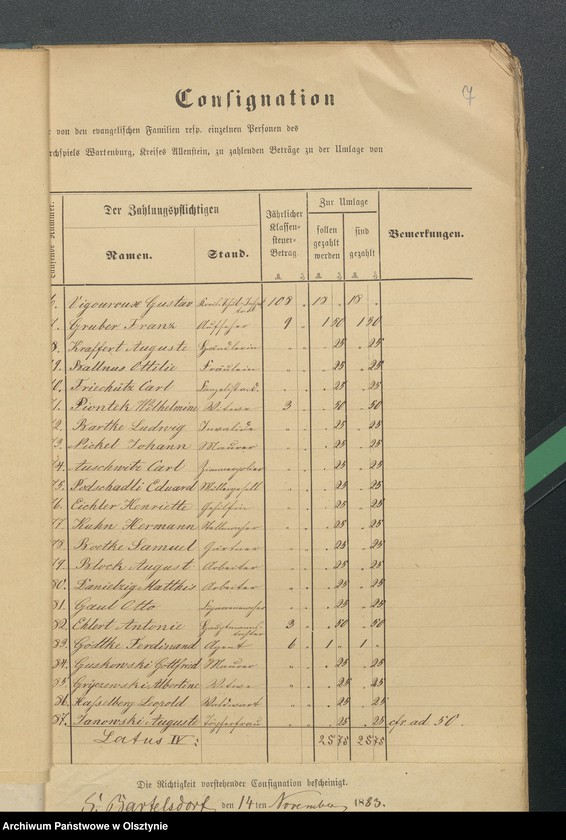 7
Consignation
von den evangelischen Familien resp. einzelnen Personen des
rchspiels Wartenburg, Kreises Allenstein, zu zahlenden Beträge zu der Umlage von
Der Zahlungspflichtigen Jährlicher Klassensteuer-Betrag Zur Umlage Bemerkungen.
Namen. Stand. sollen gezahlt werden sind gezahlt
Vigouroux Gustav 108 18 18
Gruber Franz Aufseher 9 1 50 1 50
8. Kraffert Auguste 25 25
9. Ottilie Fräulein 25 25
0. Friechütz Carl 25 25
1. Piontek Wilhelmine Witwe 3 50 50
2. Barthe Ludwig Invalide 25 25
3. Nickel Johann Maurer 25 25
4. Auschwitz Carl 25 25
75. Podschadli Eduard Müllergesell 25 25
76. Eichler Henriette 25 25
77. Kuhn Hermann 25 25
78. Boethe Samuel Gärtner 25 25
79. Block August Arbeiter 25 25
80. Danielzig Matthis Arbeiter 25 25
81. Gaul Otto 25 25
82. Ehlert Antonie Hauptmannstochter 3 50 50
83. Göttke Ferdinand Agent 6 1 1
84. Guskowski Gottfried Maurer 25 25
85. Gryczewski Albertine Witwe 25 25
86. Hasselberg Leopold Waldwart 25 25
87. Janowski Auguste Töpferfrau 25 25 cfr. ad. 50.
Latus IV: 25 75 25 75
Die Richtigkeit vorstehender Consignation bescheinigt.
Bartelsdorf den 14ten November 1883.
Archiwum Państwowe w Olsztynie